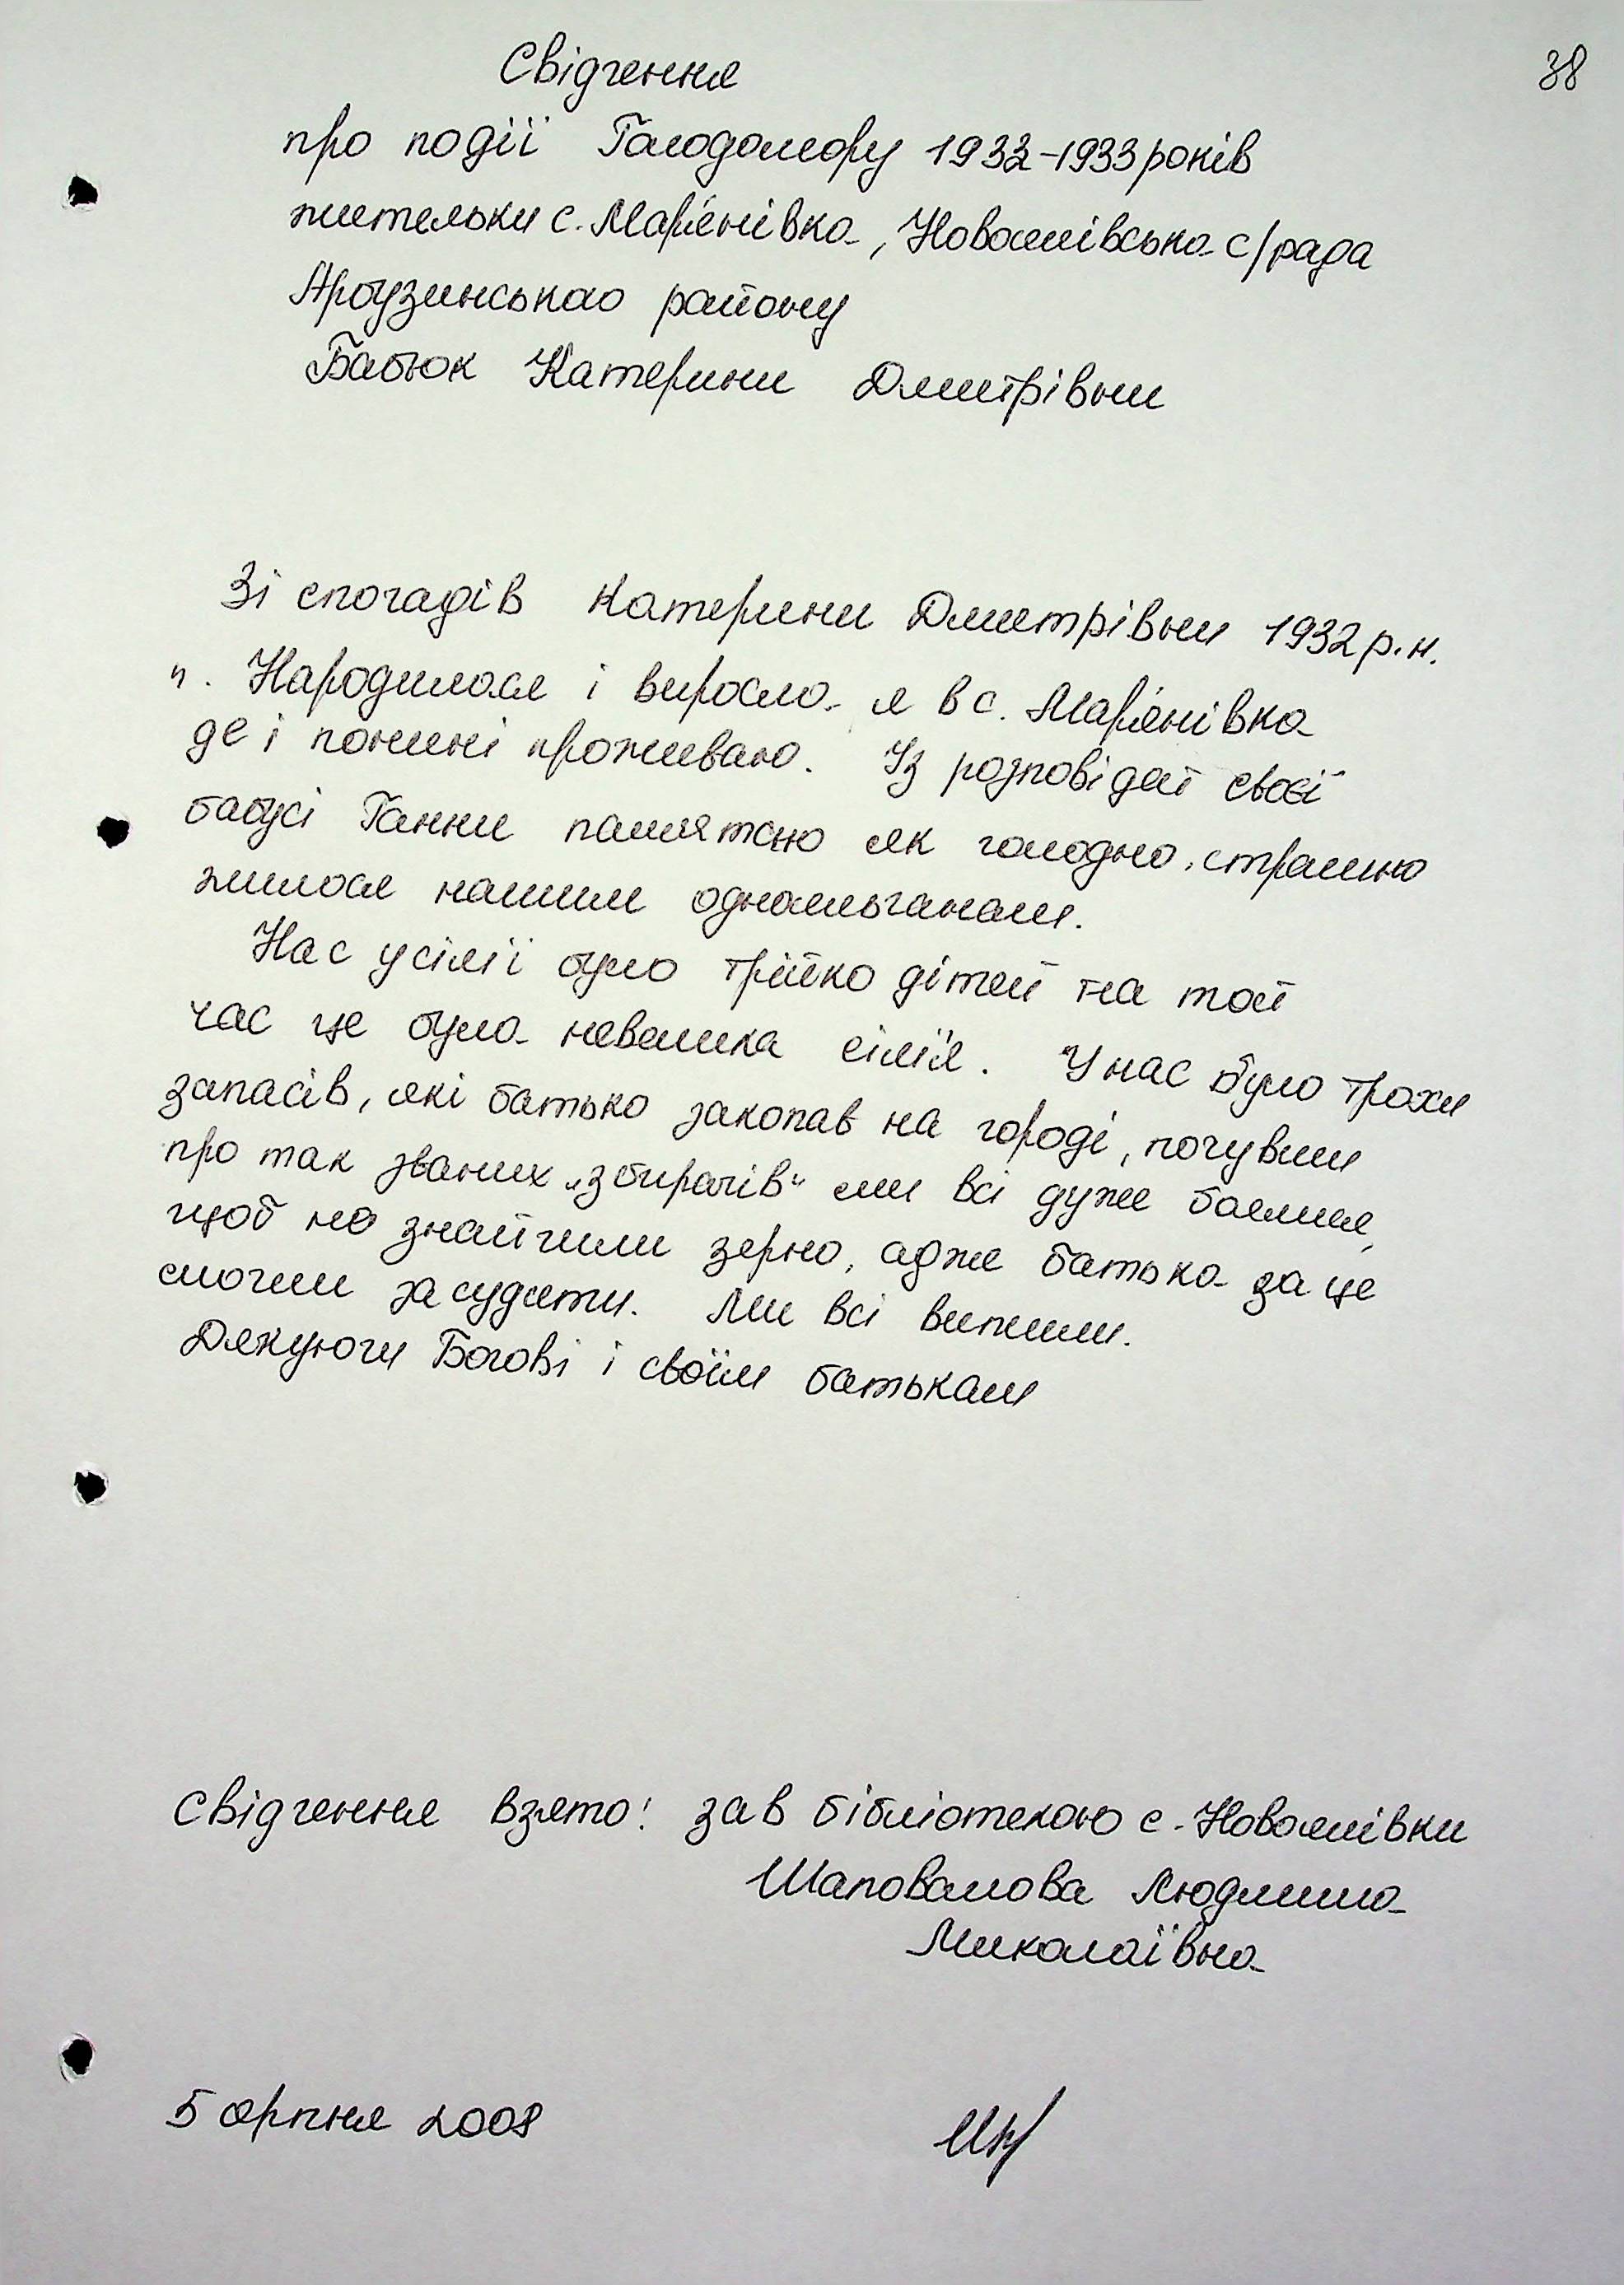 38
Свідчення
про події Голодомору 1932-1933 років
жительки с. Мар'янівка, Новоселівська с/рада
Арбузинськао району
Бабюк Катерини Дмитрівни
Зі спогадів Катерини Дмитрівни 1932 р.н.
". Народилася і виросла я в с. Мар'янівка
де і понині проживаю. Із розповідей своєї
бабусі Ганни памятаю як голодно, страшно
жилося нашим односельчанам.
Нас у сім'ї було трійко дітей на той
час це була невелика сім'я. У нас було трохи
запасів, які батько закопав на городі, почувши
про так званих „збирачів" ми всі дуже боялися,
щоб не знайшли зерно, адже батька за це
могли засудити. Ми всі вижили.
Дякуючи Богові і своїм батькам
Свідчення взято: зав бібліотекою с. Новоселівки
Шаповалова Людмила
Миколаївна
5 серпня 2008